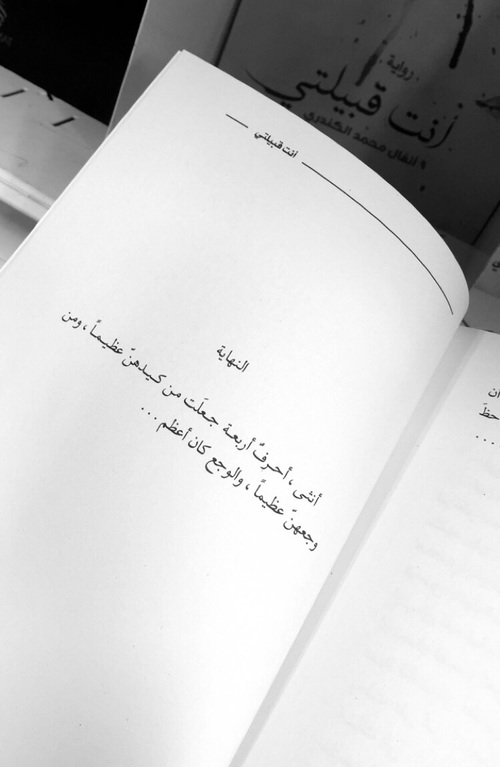 رواية
أنت قبيلتي
انفال محمد الكندري
انت قبيلتي
النهاية
أنثى ، أحرفٌ أربعة جعلَت من كيدهنّ عظيماً ، ومن
وجعهنّ عظيماً ، والوجع كان أعظم ...
ان
حظَ
...